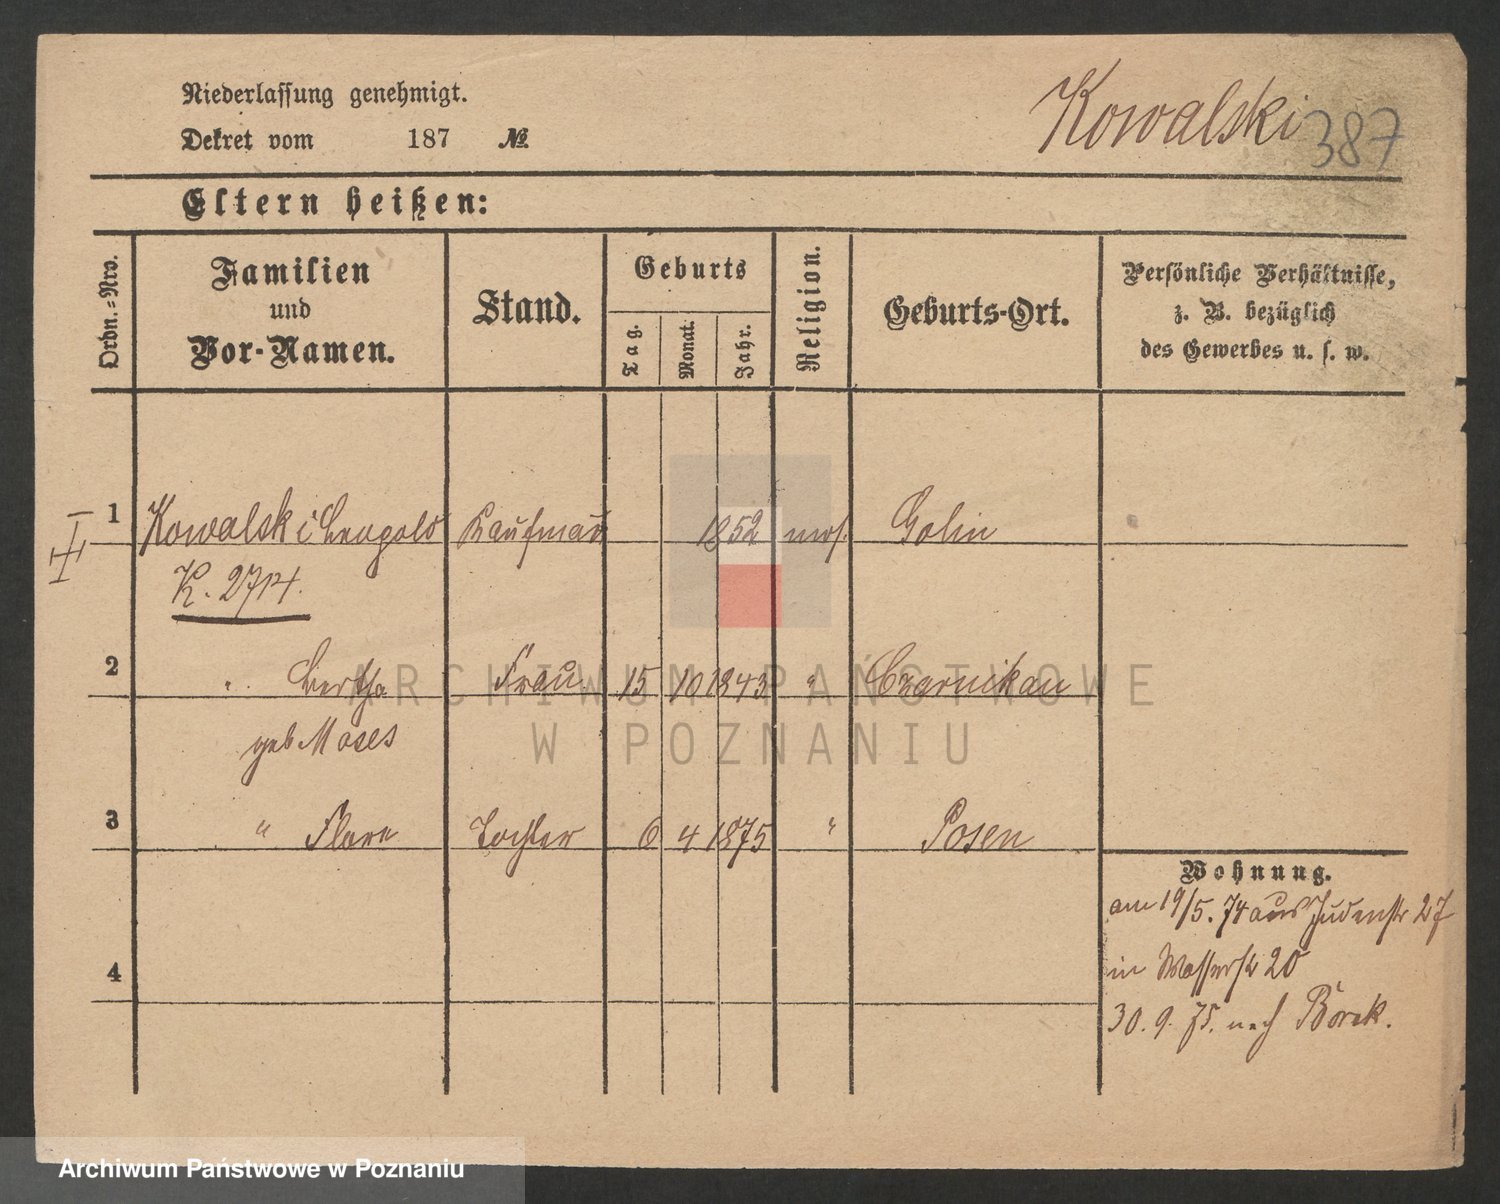 Niederlassung genehmigt.
Dekret vom 187 №
Kowalski 387
Eltern heißen:
Ordn.-Nro.
Familien
und
Vor-Namen.
Stand.
Geburts
Tag.
Monat.
Jahr.
Religion.
Geburts-Ort.
Persönliche Verhältnisse,
z. B. bezüglich
des Gewerbes u. s. w.
1 Kowalski Leopold Kaufman 1852 mos. Golin
K. 2714.
2 " Bertha Frau 15 10 1843 " Czarnikau
geb Moses
3 " Flora Tochter 6 4 1875 " Posen
Wohnung.
am 19/5. 74 aus Judenstr 27
4
in Wasserstr 20
30. 9. 75. nach Borek.
ARCHIWUM PAŃSTWOWE
W POZNANIU
Archiwum Państwowe w Poznaniu